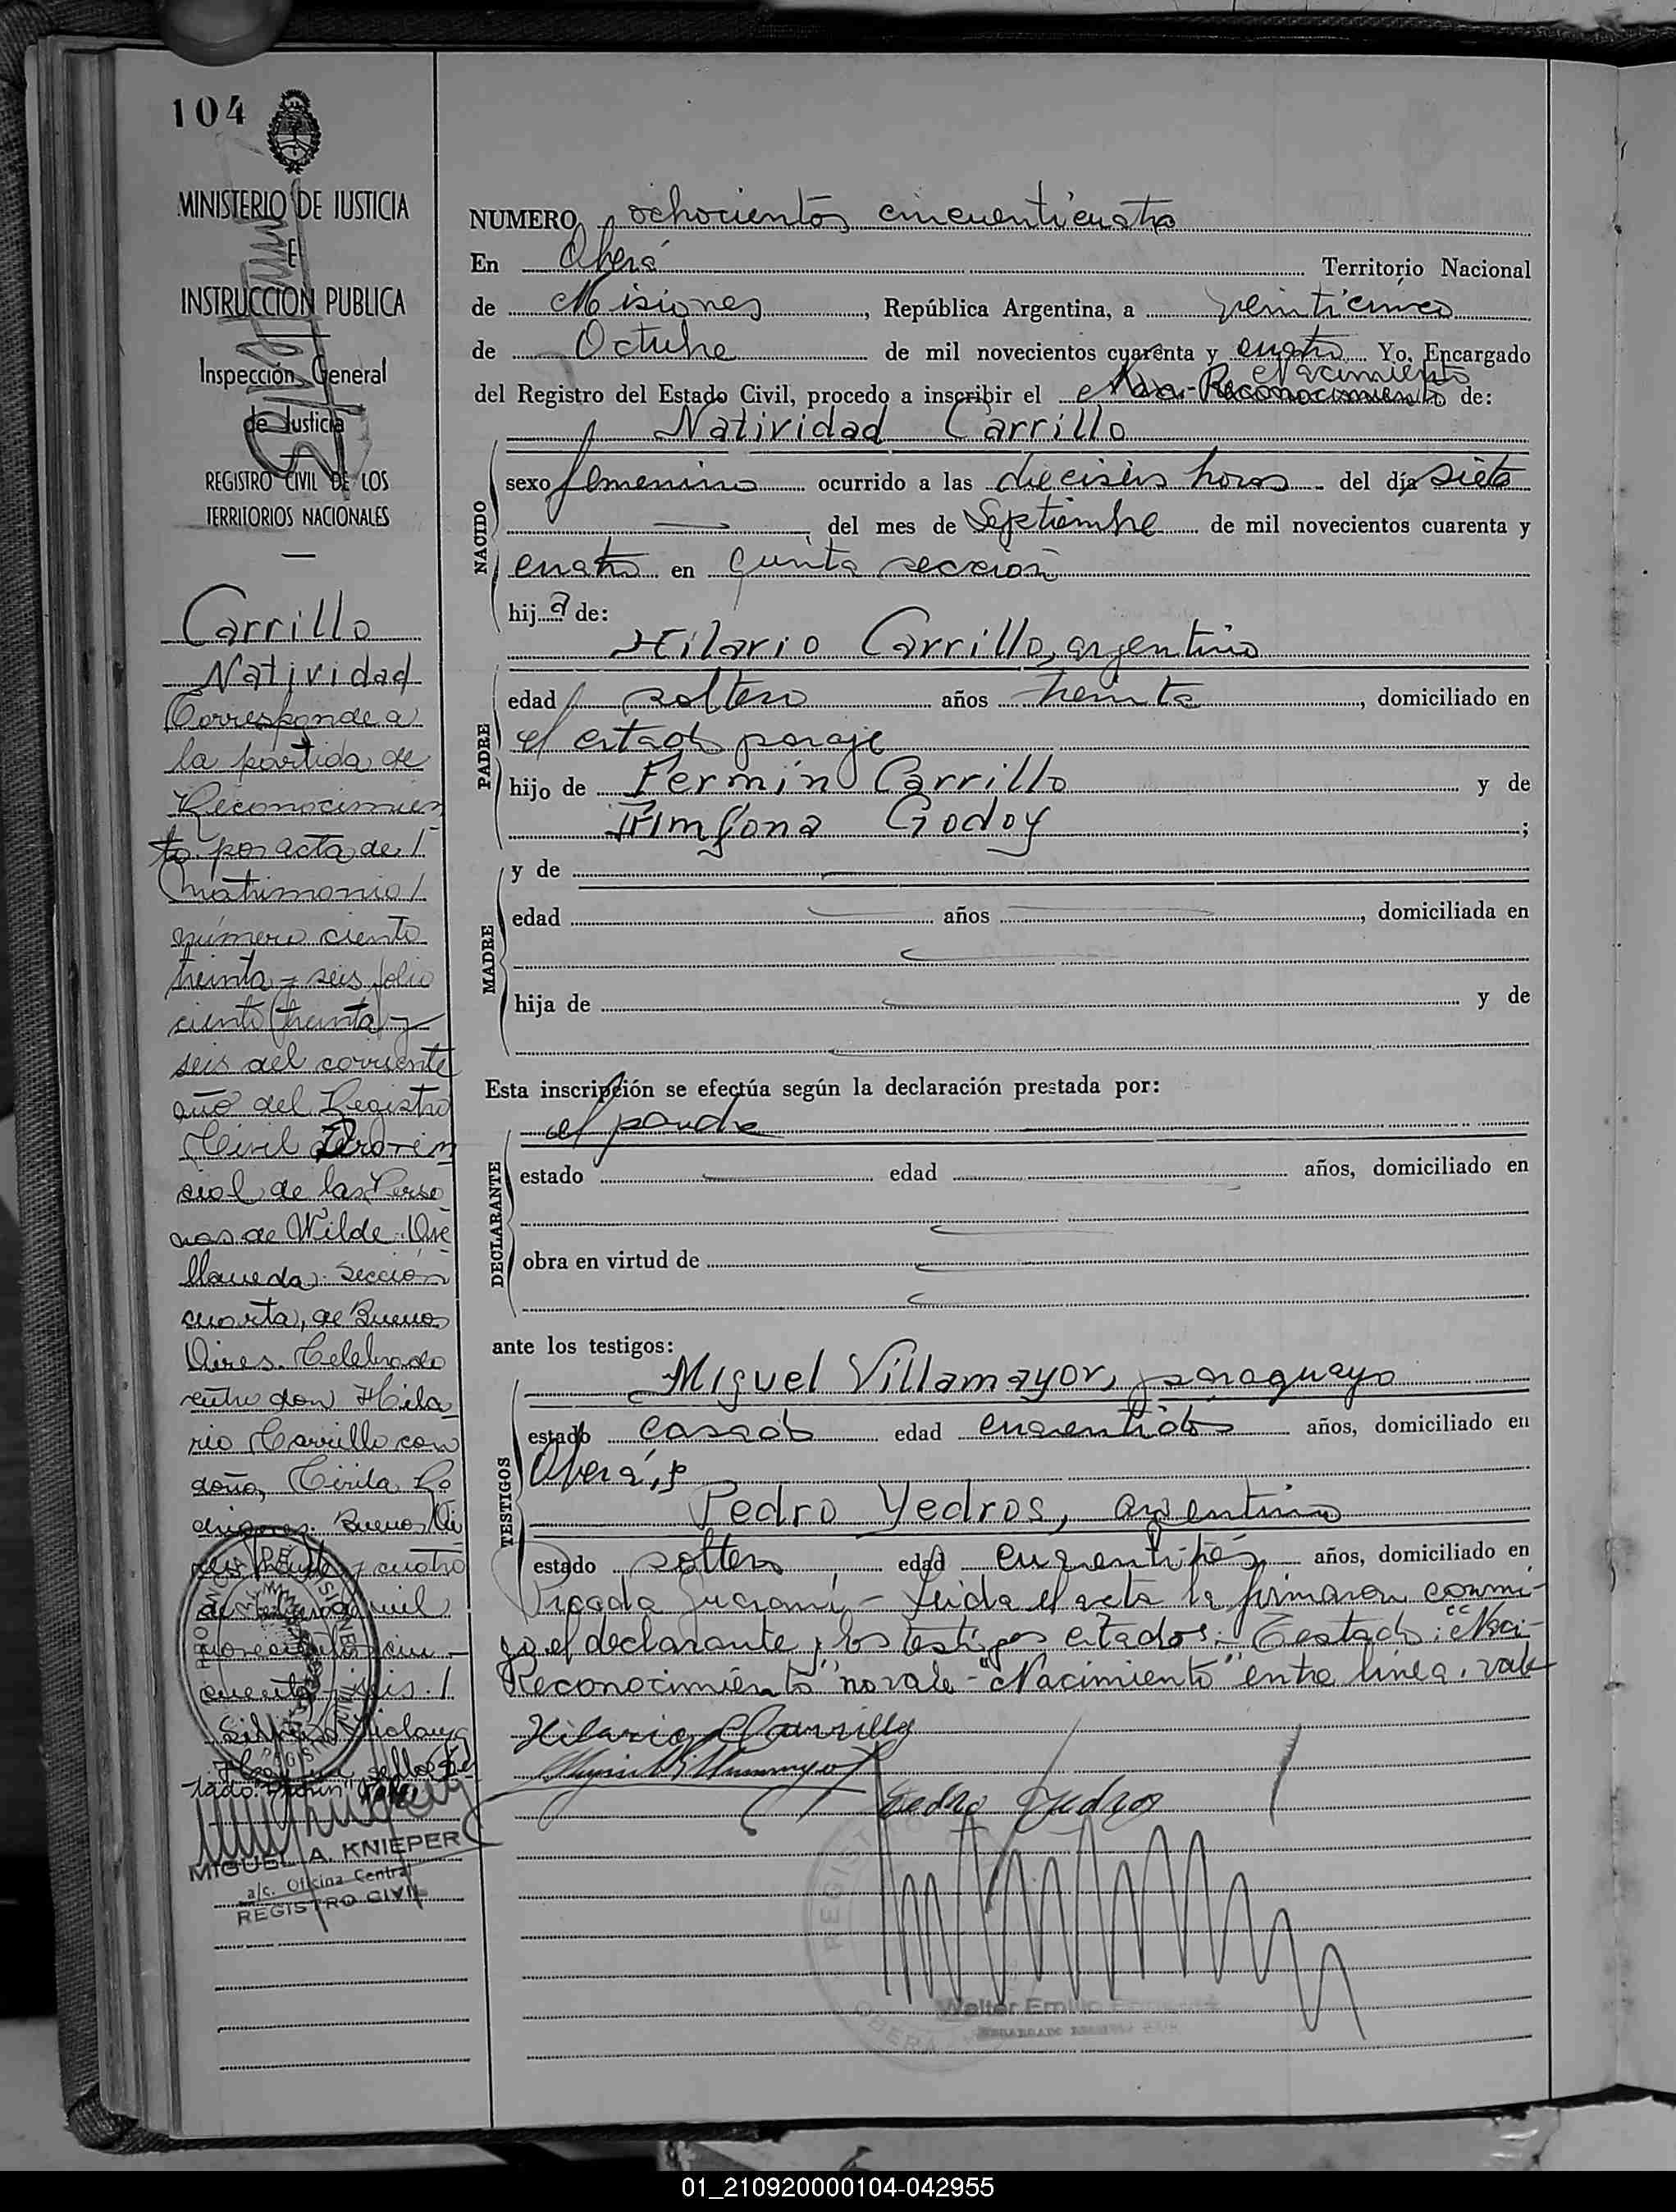 104
MINISTERIO DE JUSTICIA
E
INSTRUCCION PUBLICA
Inspección General
de Justicia
REGISTRO CIVIL DE LOS
TERRITORIOS NACIONALES
Carrillo
Natividad
Corresponde a
la partida de
Reconocimien
to por acta de
matrimonio
número ciento
treinta y seis folio
ciento treinta y
seis del corriente
año del Registro
Civil Provin
cial de las Perso
nas de Wilde. Ave
llaneda. Sección
cuarta, de Buenos
Aires. Celebrado
entre don Hila
rio Carrillo con
doña, Cirila Ro
driguez. Buenos Ai
y cuatro
mil
MIGUEL A. KNIEPER
a/c. Oficina Central
REGISTRO CIVIL
NUMERO ochocientos cincuenticuatro
En Oberá Territorio Nacional
de Misiones, República Argentina, a veinticinco
de Octubre de mil novecientos cuarenta y cuatro Yo, Encargado
Nacimiento
del Registro del Estado Civil, procedo a inscribir el Reconocimiento de:
Natividad Carrillo
NACIDO
sexo femenino ocurrido a las dieciséis horas del día siete
del mes de Septiembre de mil novecientos cuarenta y
cuatro en quinta sección
hija de:
Hilario Carrillo, argentino
PADRE
edad soltero años treinta, domiciliado en
el citado paraje
hijo de Fermín Carrillo y de
Godoy;
MADRE
y de
edad años, domiciliada en
hija de y de
Esta inscripción se efectúa según la declaración prestada por:
el padre
DECLARANTE
estado edad años, domiciliado en
obra en virtud de
ante los testigos:
TESTIGOS
Miguel Villamayor, paraguayo
estado casado edad cuarentidos años, domiciliado en
Oberá, y
Pedro Yedros, argentino
estado soltero edad cuarentitrés años, domiciliado en
Picada Guaraní - Leida el acta la firmaron conmi-
go el declarante y los testigos citados. - Testado: "Naci-
Reconocimiento" no vale - "Nacimiento" entre línea. vale
Hilario Carrillo
Pedro Yedros
01_210920000104-042955